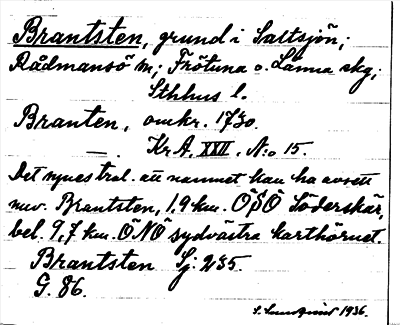 Brantsten, grund i Saltsjön;
Rådmansö sn; Frötuna o. Länna skg;
Sthlms l.
Branten, omkr. 1730.
— Kr.A. XXII. N:o 15.
Det synes trol. att namnet kan ha avsett
nuv. Brantsten, 1,9 km. ÖSÖ Söderskär,
bel. 9,7 km. ÖNÖ sydvästra karthörnet.
Brantsten Sj. 235.
G. 86.
1936.